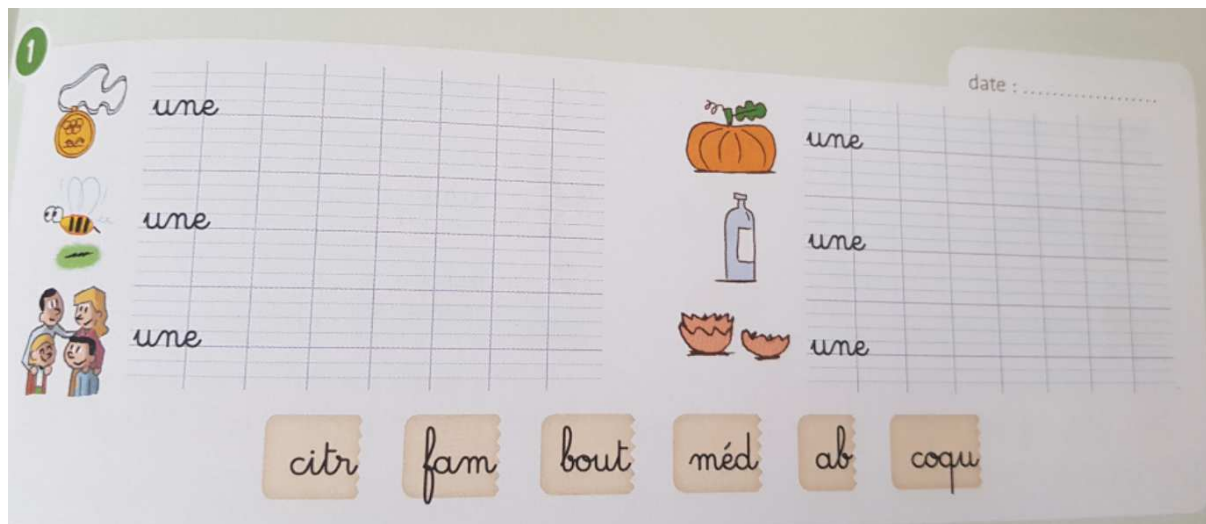 1
date : ....................
une
une
une
une
une
une
citr
fam
bout
méd
ab
coqu